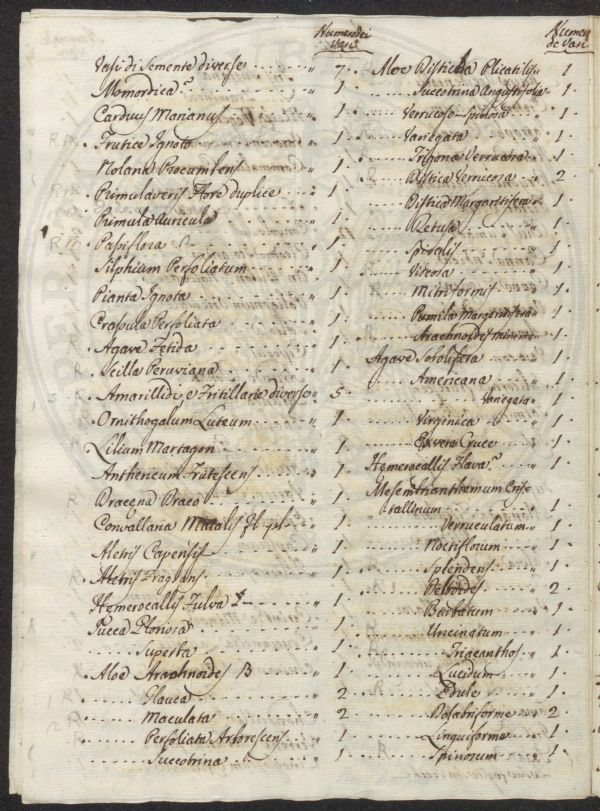 Numero dei Vasi
Vasi di Semente diverse 7.
Momordica 1
Carduus Marianus 1
Frutice Ignoto 1
Nolana Procumbens 1
Primulaveris Flore duplice 1
Primula Auricula 1
Pasiflora 1
Silphium Perfoliatum 1
Pianta Ignota 1
Crassula Perfoliata 1
Agave Fetida 1
Scilla Peruviana 1
Amarillidi, e Fritillarie diverse 5.
Ornithogalum Luteum 1
Lilium Martagon 1
Anthericum Frutescens 1
Dracena Draco 1
Convallaria Maialis fl. pl. 1
Aletris Capensis 1
Aletris Fragrans 1
Hemerocallis Fulva 1
Yucca Gloriosa 1
Superba 1
Aloe Arachnoides B 1
Glauca 2
Maculata 2
Perfoliata Arborescens 1
Succotrina 1
Numero de Vasi
Aloe Disticha Plicatilis 1
Succotrina Angustifolia 1
Verrucoso-Spinosa 1
Variegata 1
Trigona Verrucosa 1
Distica Verrucosa 2
Distica Margaritifera 1
Retusa 1
Spiralis 1
Viscosa 1
Mitriformis 1
Pumila Margaritifera 1
Arachnoides minima 1
Agave Sobolifera 1
Americana 1
Variegata 1
Virginica 1
Hemerocallis Flava 1
Mesembrianthemum Cris-
tallinum 1
Verruculatum 1
Noctiflorum 1
Splendens 1
Deltoides 2
Barbatum 1
Uncinatum 1
Lucidum 1
Edule 1
Dolabriforme 2
Linguiforme 1
Spinosum 1